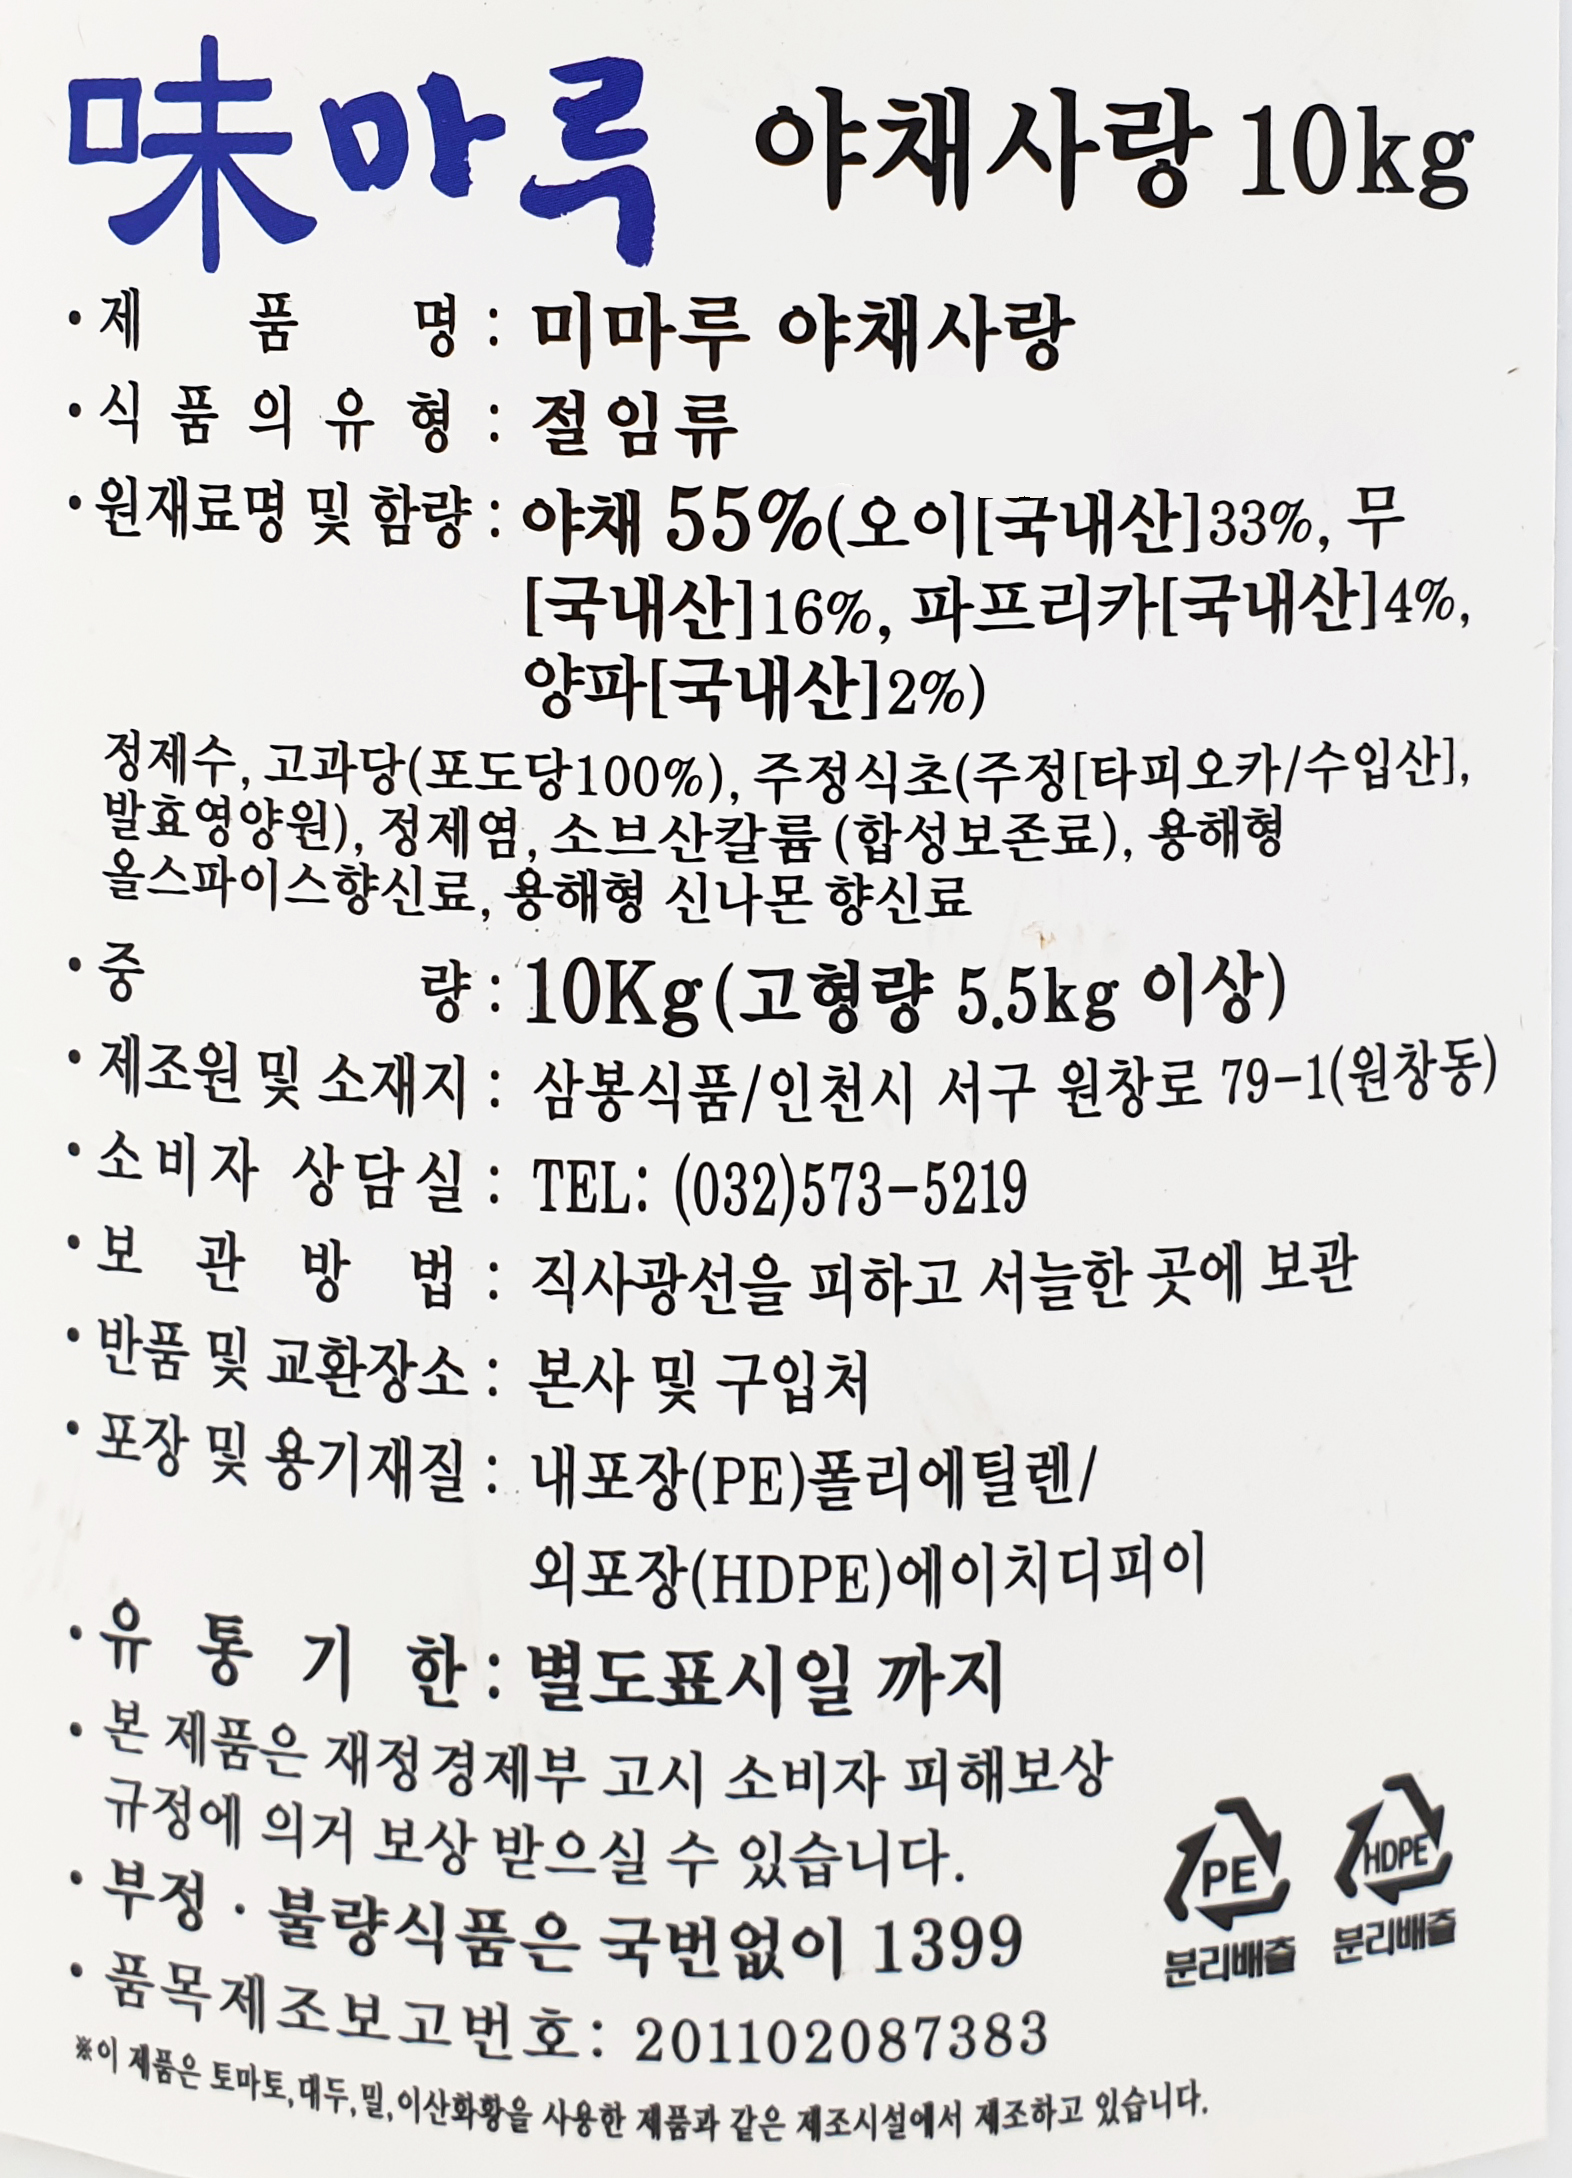 味마루 야채사랑 10kg
· 제 품 명 : 미마루 야채사랑
· 식 품 의 유 형 : 절임류
· 원재료명 및 함량 : 야채 55%(오이[국내산]33%, 무
[국내산]16%, 파프리카[국내산]4%,
양파[국내산]2%)
정제수, 고과당(포도당100%), 주정식초(주정[타피오카/수입산],
발효영양원), 정제염, 소브산칼륨 (합성보존료), 용해형
올스파이스향신료, 용해형 신나몬 향신료
· 중 량 : 10Kg(고형량 5.5kg 이상)
· 제조원 및 소재지 : 삼봉식품/인천시 서구 원창로 79-1(원창동)
· 소비자 상담실 : TEL: (032)573-5219
· 보 관 방 법 : 직사광선을 피하고 서늘한 곳에 보관
· 반품 및 교환장소 : 본사 및 구입처
· 포장 및 용기재질 : 내포장(PE)폴리에틸렌/
외포장(HDPE)에이치디피이
· 유 통 기 한 : 별도표시일 까지
· 본 제품은 재정경제부 고시 소비자 피해보상
규정에 의거 보상 받으실 수 있습니다.
· 부정 · 불량식품은 국번없이 1399
· 품목제조보고번호: 201102087383
※이 제품은 토마토,대두,밀,이산화황을 사용한 제품과 같은 제조시설에서 제조하고 있습니다.
PE
분리배출
HDPE
분리배출